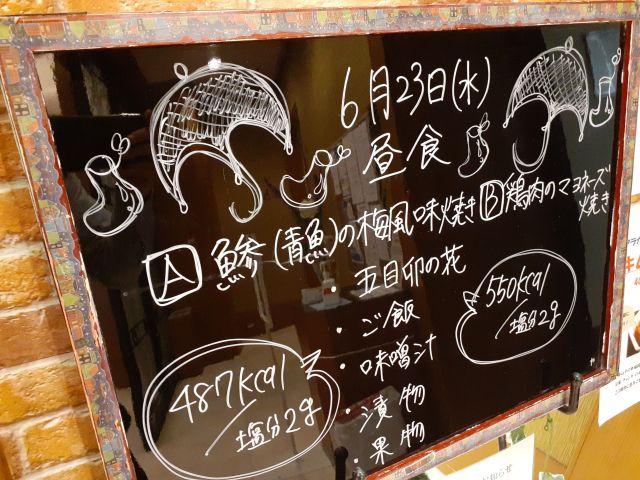 6月23日(水)
昼食
A 鯵(青魚)の梅風味焼き
B 鶏肉のマヨネーズ
焼き
・五目卯の花
・ご飯
・味噌汁
・漬物
・果物
487kcal
塩分2g
550kcal
塩分2g
お知らせ